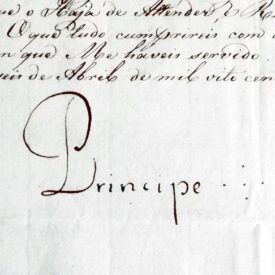 que o Haja de Attender, E R
O que tudo cumprireis com
que Me haveis servido.
de Abril de mil oito cen
Principe